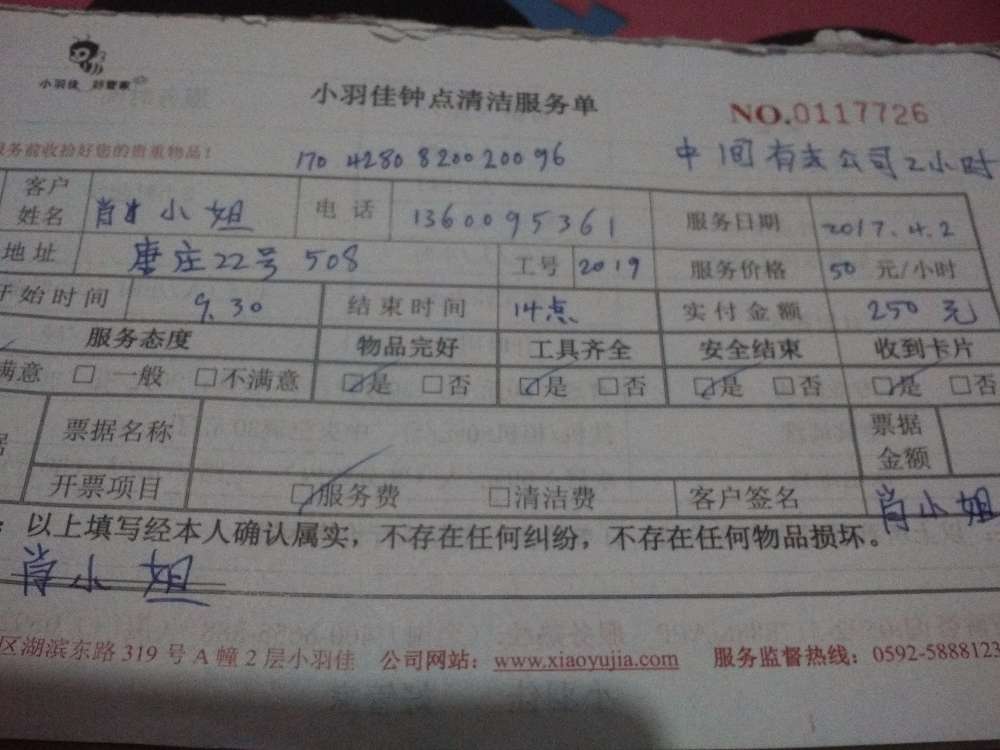 小羽佳 好管家
小羽佳钟点清洁服务单
NO.0117726
服务前收拾好您的贵重物品！
170 4280 820020096
中间有去公司2小时
客户姓名 肖小姐 电话 1360095361 服务日期 2017.4.2
地址 唐庄22号 508 工号 2019 服务价格 50 元/小时
开始时间 9.30 结束时间 14点 实付金额 250 元
服务态度 物品完好 工具齐全 安全结束 收到卡片
满意 □ 一般 □不满意 ☑是 □否 ☑是 □否 ☑是 □否 ☑是 □否
票据名称 票据金额
开票项目 ☑服务费 □清洁费 客户签名 肖小姐
：以上填写经本人确认属实，不存在任何纠纷，不存在任何物品损坏。
肖小姐
区湖滨东路 319 号 A 幢 2 层小羽佳 公司网站：www.xiaoyujia.com 服务监督热线：0592-5888123